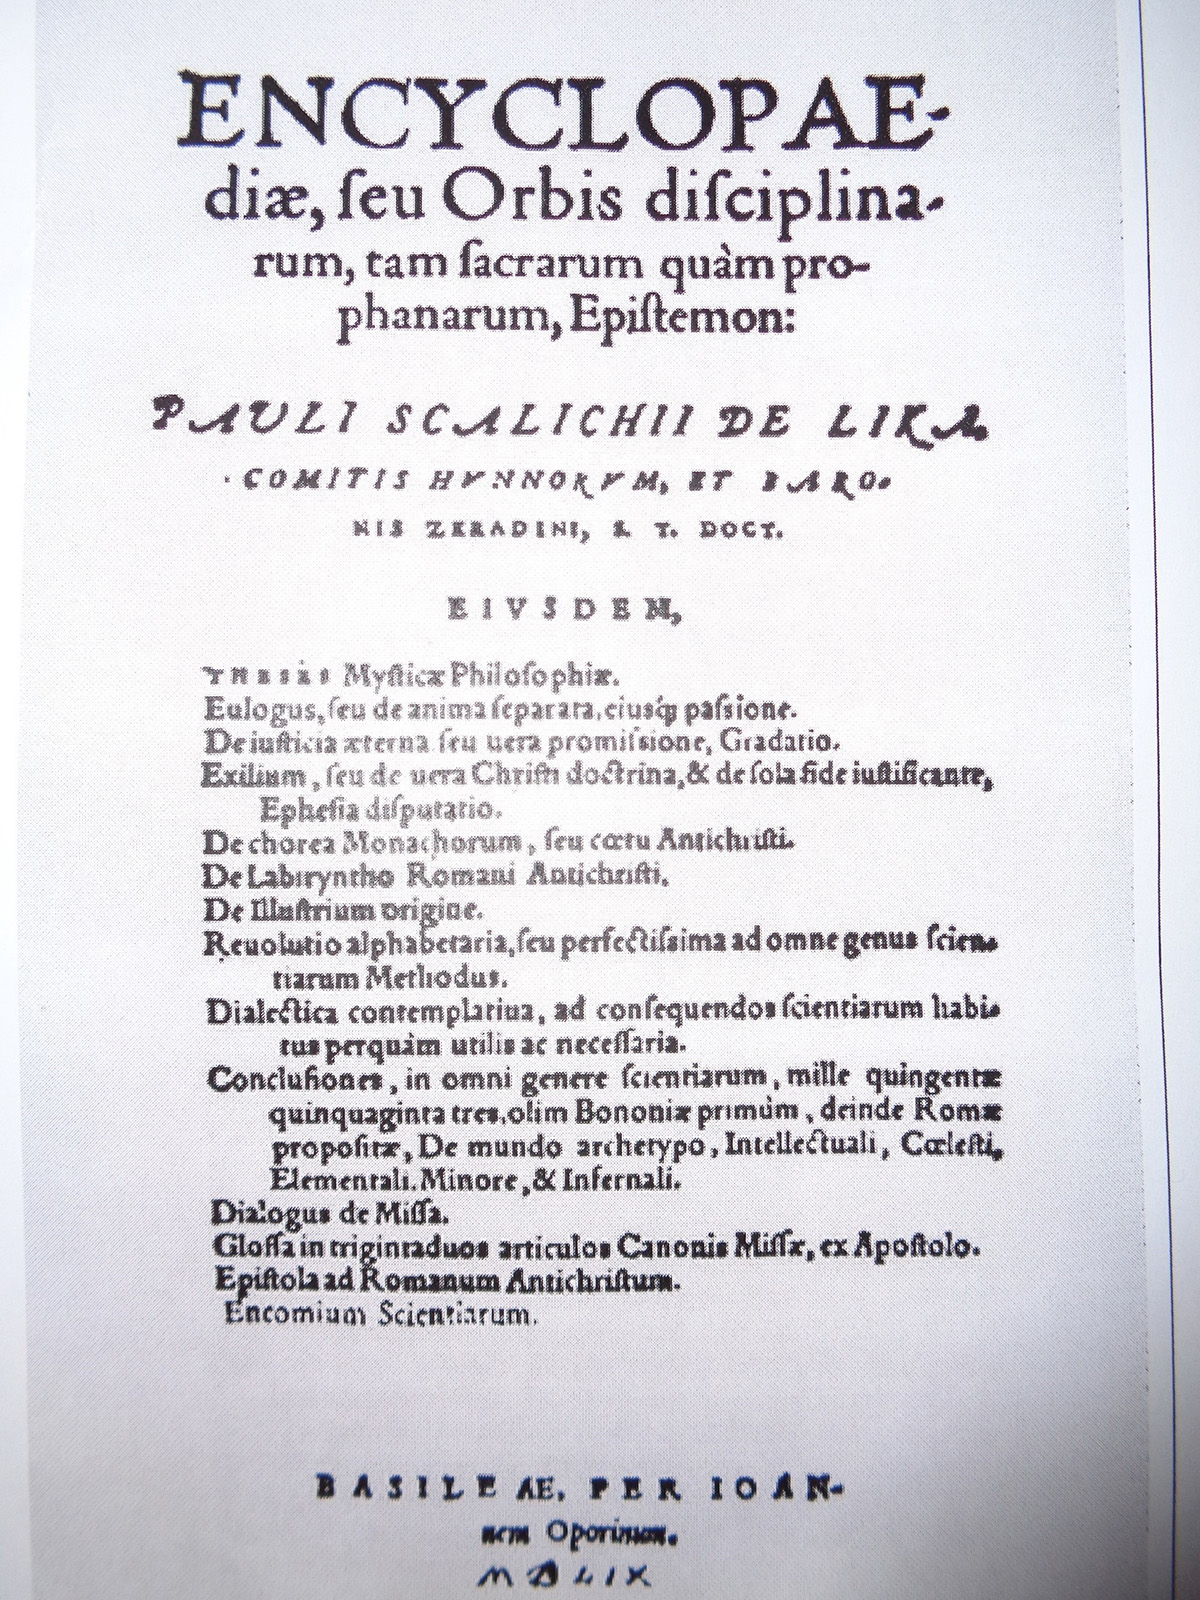 ENCYCLOPAE-
diæ, ſeu Orbis diſciplina-
rum, tam ſacrarum quàm pro-
phanarum, Epiſtemon:
PAULI SCALICHII DE LIKA,
COMITIS HVNNORVM, ET BARO-
NIS ZKRADINI, S. T. DOCT.
EIVSDEM,
THESES Myſticæ Philoſophiæ.
Eulogus, ſeu de anima ſeparata, eiusq́ꝫ paſsione.
De iuſticia æterna ſeu uera promiſsione, Gradatio.
Exilium, ſeu de uera Chriſti doctrina, & de ſola fide iuſtificante,
Epheſia diſputatio.
De chorea Monachorum, ſeu cœtu Antichriſti.
De Labiryntho Romani Antichriſti.
De Illuſtrium origine.
Reuolutio alphabetaria, ſeu perfectiſsima ad omne genus ſcien-
tiarum Methodus.
Dialectica contemplatiua, ad conſequendos ſcientiarum habi-
tus perquàm utilis ac neceſſaria.
Concluſiones, in omni genere ſcientiarum, mille quingentæ
quinquaginta tres, olim Bononiæ primùm, deinde Romæ
propoſitæ, De mundo archetypo, Intellectuali, Cœleſti,
Elementali, Minore, & Infernali.
Dialogus de Miſſa.
Gloſſa in trigintaduos articulos Canonis Miſſæ, ex Apoſtolo.
Epiſtola ad Romanum Antichriſtum.
Encomium Scientiarum.
BASILEAE, PER IOAN-
nem Oporinum.
MDLIX